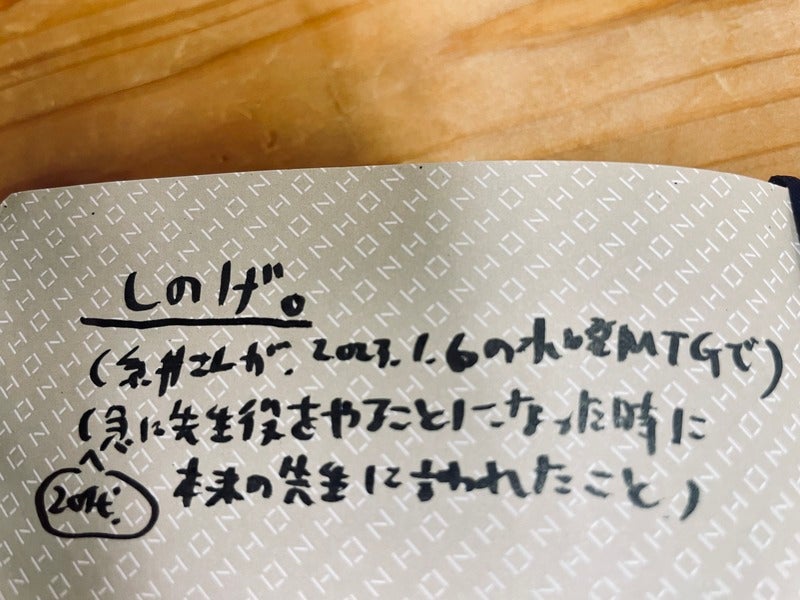 しのげ。
(糸井さんが、2023.1.6の水曜MTGで)
(急に先生役をやることになった時に
20代！
本来の先生に言われたこと)